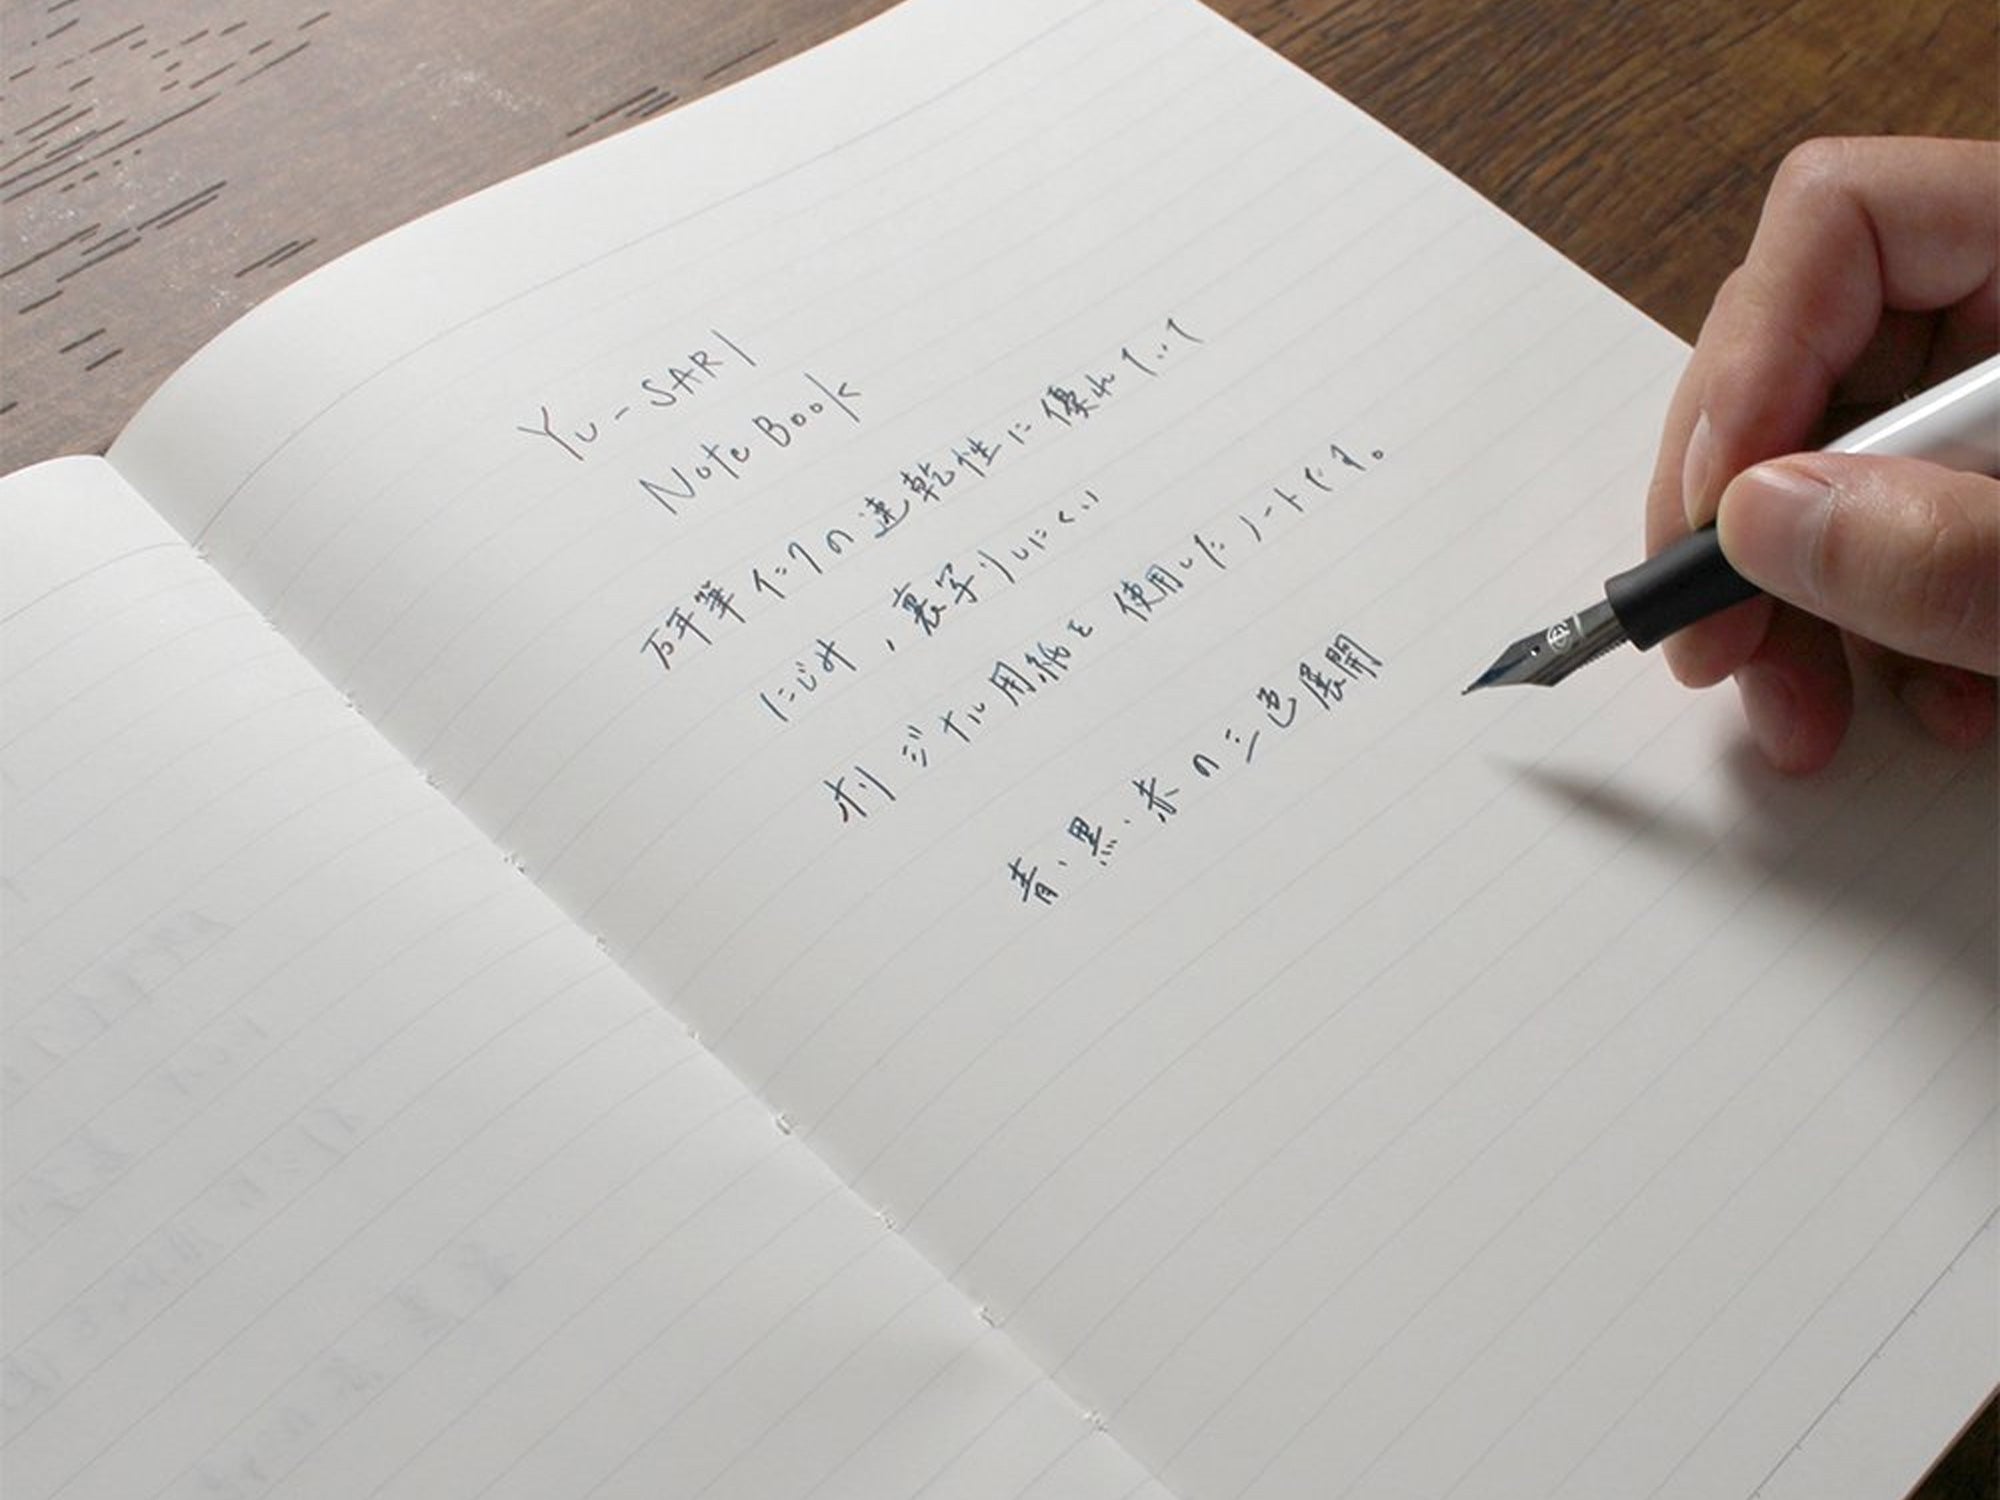 Yu-SARI
Note Book
万年筆インクの速乾性に優れていて
にじみ,裏写りしにくい
オリジナル用紙を使用したノートです。
青・黒・赤の三色展開